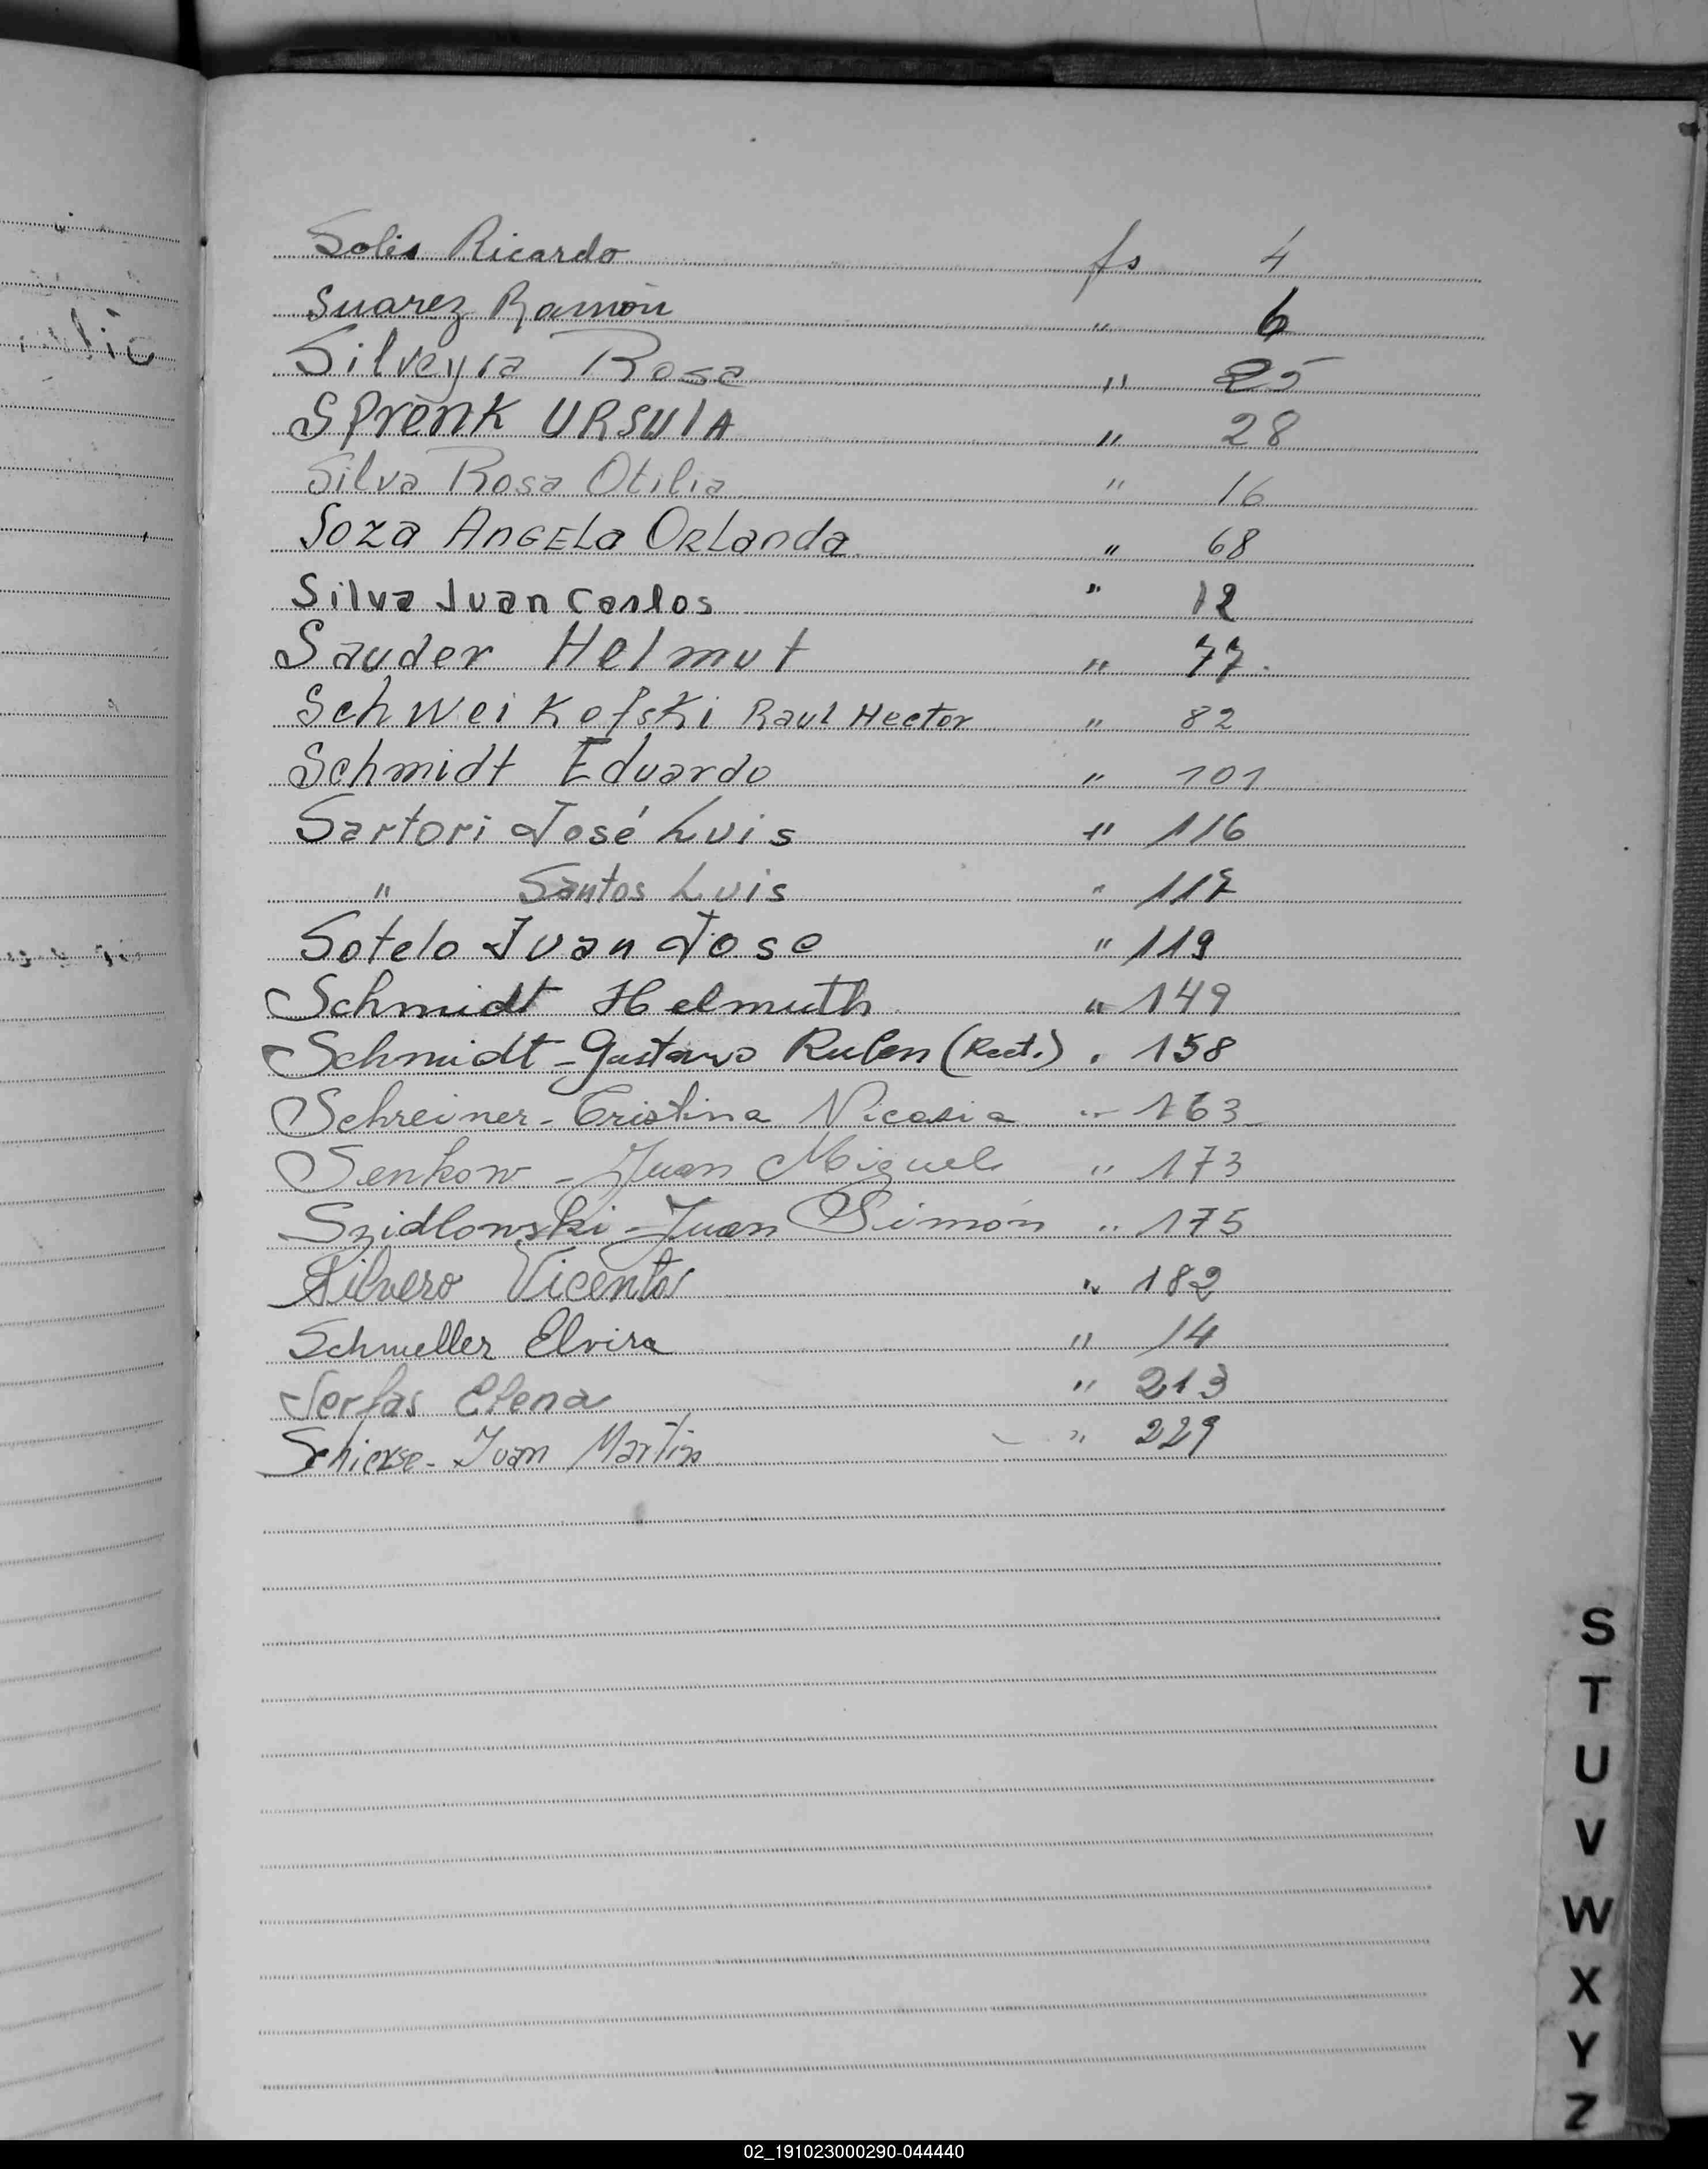 Solis Ricardo fs 4
Suarez Ramón " 6
Silveyra Rosa " 25
SPrenK URSUlA " 28
Silva Rosa Otilia " 16
Soza AnGELa ORLanda " 68
Silva Juan Carlos " 12
Sauder Helmut " 77.
SchWeiKofsKi Raul Hector " 82
Schmidt Eduardo " 101
Sartori José Luis " 116
" Santos Luis " 117
Sotelo Juan Jose " 119
Schmidt Helmuth " 149
Schmidt - Gustavo Ruben (Rect.) " 158
Schreiner - Cristina Nicasia " 163
Senkow - Juan Miguel " 173
Szidlowski - Juan Simón " 175
Silvero Vicenta " 182
Schmeller Elvira " 14
Serfas Elena " 213
Schierse - Juan Martin " 229
S
T
U
V
W
X
Y
Z
02_191023000290-044440